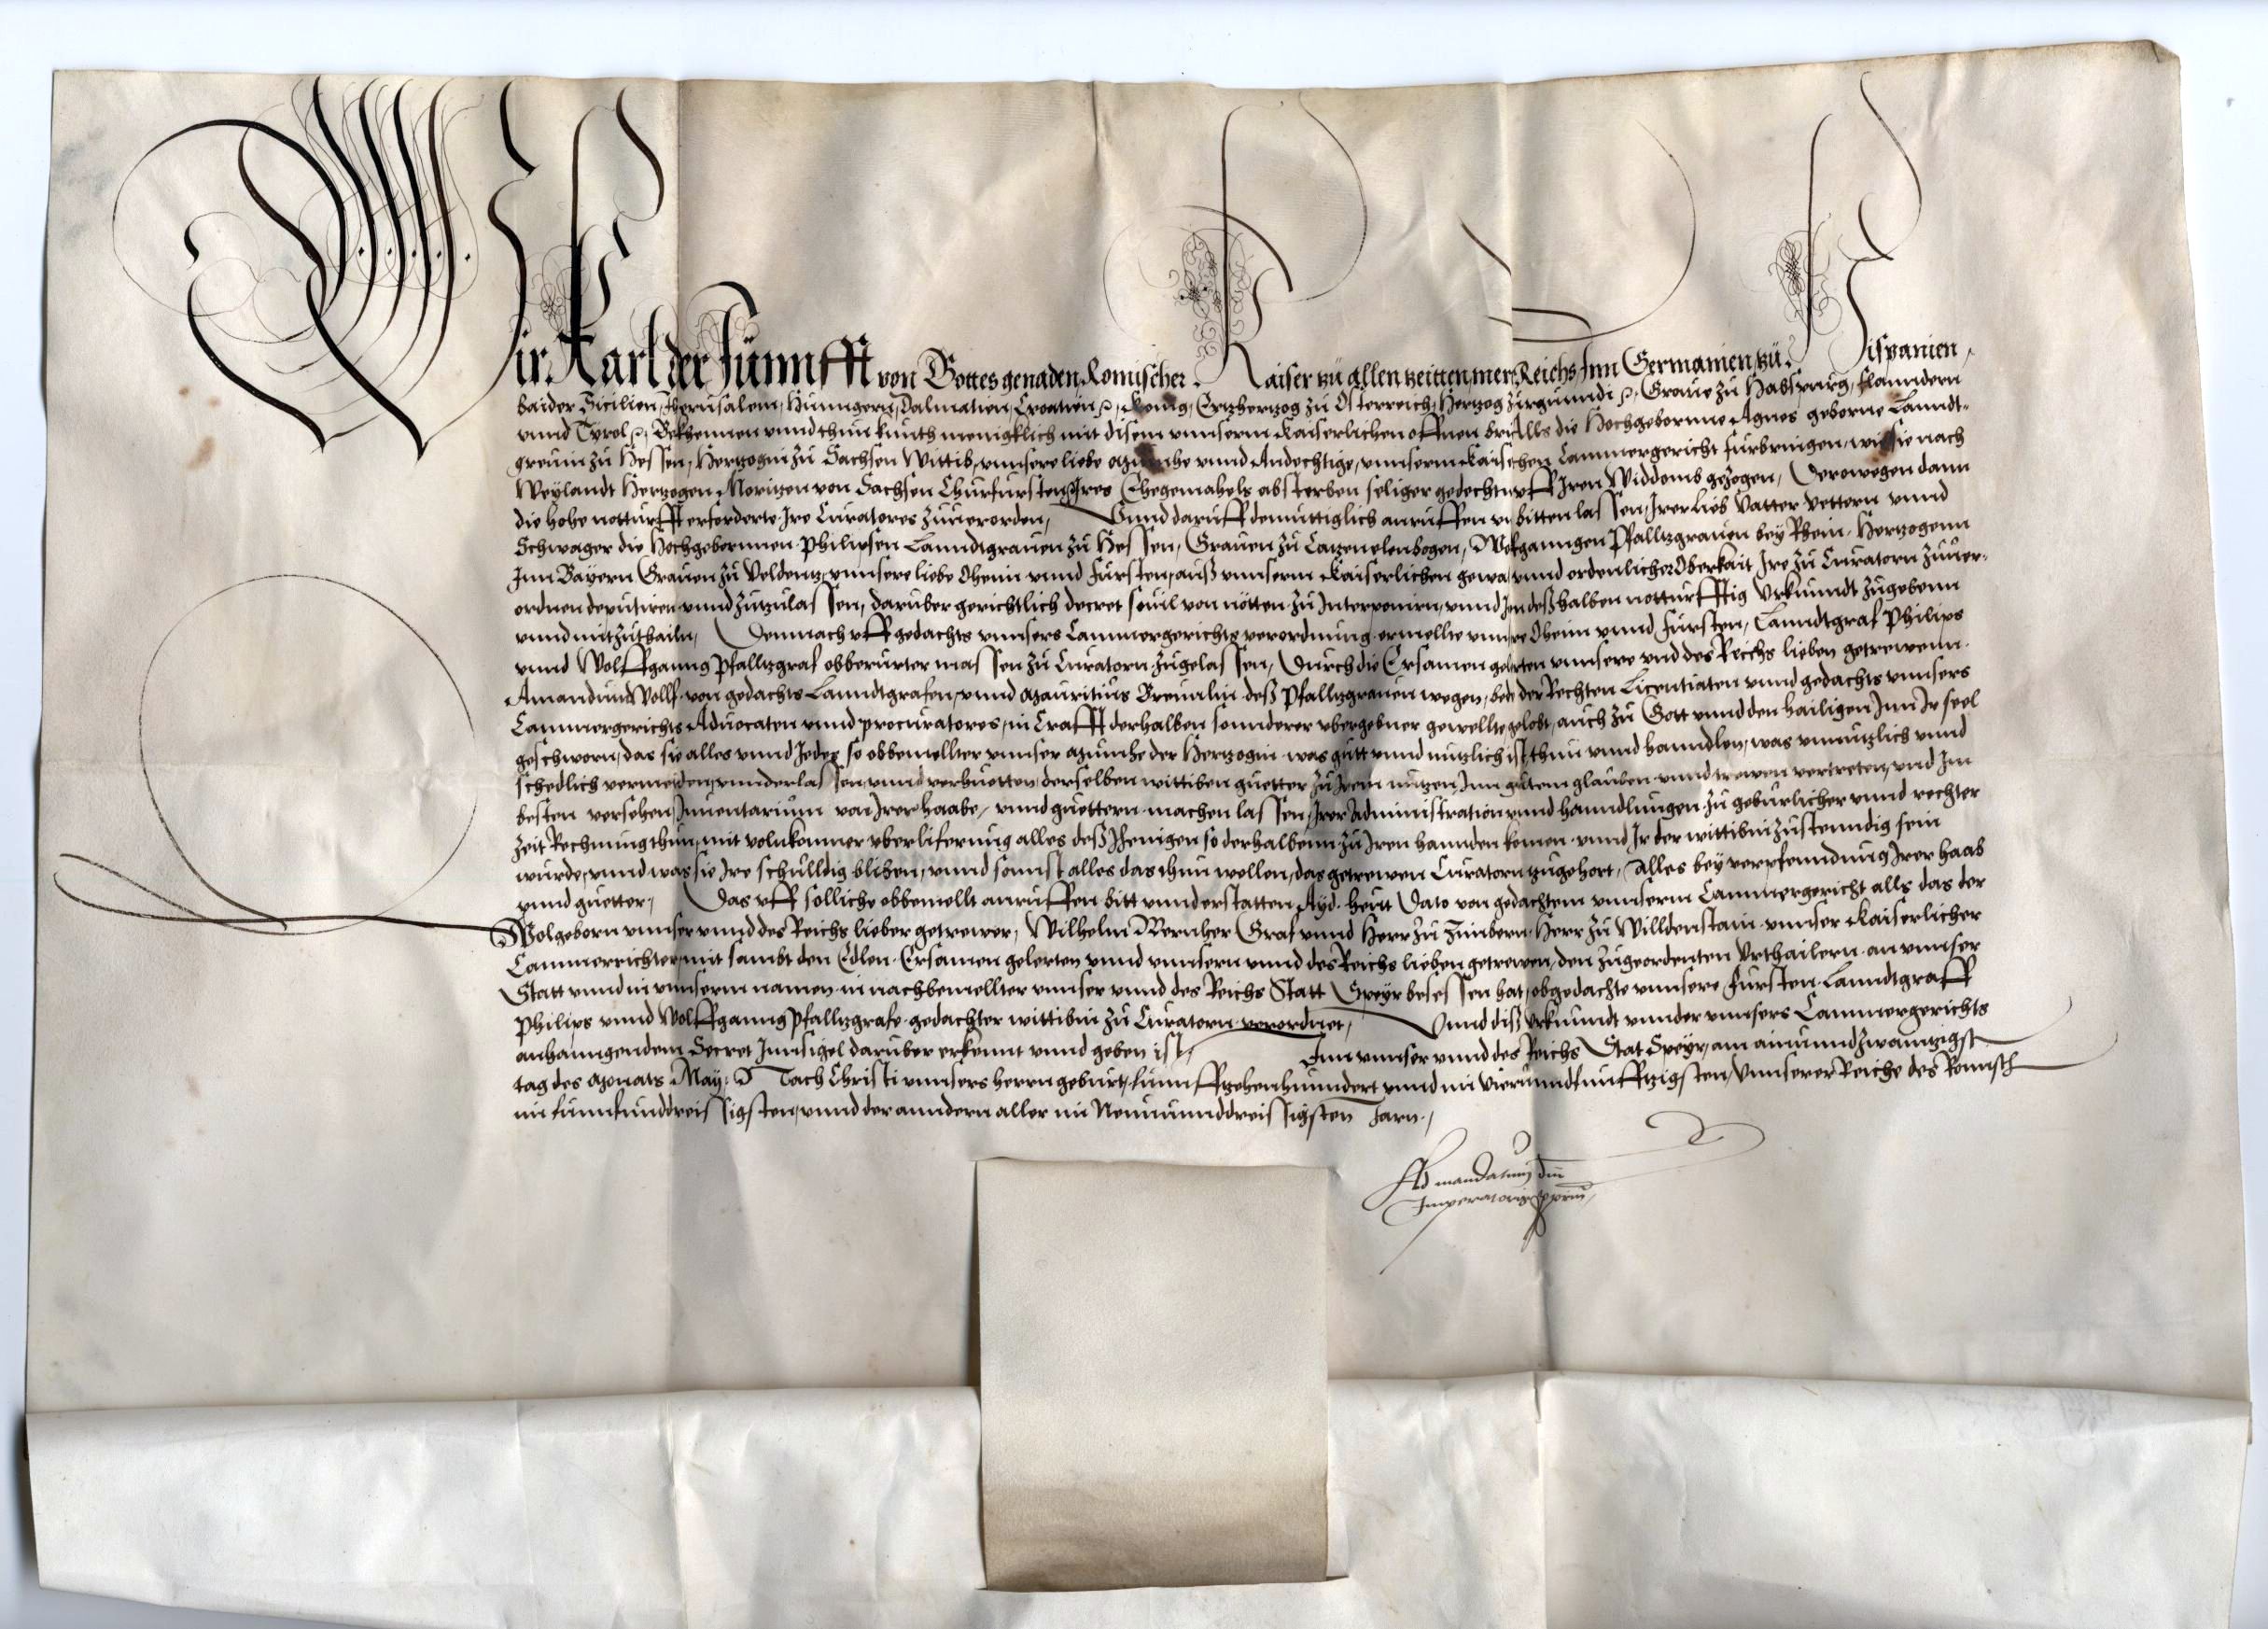 Wir Karl der Fünnfft von Gottes genaden Romischer Kaiser zu allen zeitten merer Reichs Inn Germanien, zu Hispanien,
baider Sicilien, Jherusalem, Hunngern, Dalmatien, Croatien Konig, Ertzhertzog zu Osterreich, Hertzog zu Graue zu Habspurg, Flanndern
vnnd Tyrol, Bekhennen vnnd thun kunth menigklich mit disem vnnserm Kaiserlichen offnen Alls die Hochgebornne Agnes geborne Lanndt-
greuin zu Hessen, Hertzogin zu Sachsen Wittib, vnnsere liebe Mumhe vnnd Andechtige, vnnserm Cammergericht furbringen, wie sie nach
Weylandt Hertzogen Moritzen von Sachsen Churfursten Ires Ehegemahels absterben seliger gedechtnus vff Iren Widdomb gezogen, Derowegen dann
die hohe notturfft erforderte Ire Curatores zuuerorden, Vnnd daruff demuttiglich anruffen vnd bitten lassen, Irer lieb Vatter vettern vnnd
Schwager die Hochgebornnen Philipsen Lanndtgrauen zu Hessen, Grauen zu Catzenelenbogen, Wolfganngen Pfalltzgrauen bey Rhein, Hertzogenn
Inn Bayern Grauen zu Veldentz, vnnsere liebe Oheim vnnd Fursten, auß vnnserm Kaiserlichen vnnd ordenlicher Oberkait Ire zu Curatorn zuuer-
ordnen deputiren vnnd zutzulassen, daruber gerichtlich decret souil von nötten zu Interponirn, vnnd Jen deßhalben notturfftig Vrkunndt zugebenn
vnnd mitzuthailn, Demnach vff gedachts vnnsers Cammergerichts verordnung ermellte vnnsere Oheim vnnd Fursten, Lanndtgraf Philips
vnnd Wolffganng Pfalltzgraf obberurter massen zu Curatorn zugelassen, Durch die Ersamen gelerten vnnsere vnd des Reichs lieben getrewenn
Amandum Wollf von gedachts Lanndtgrafen, vnnd Mauritius Breunlin deß Pfalltzgrauen wegen, bede der Rechten Licentiaten vnnd gedachts vnnsers
Cammergerichts Aduocaten vnnd procuratores, in Crafft derhalben sonnderer vbergebner gewellte gelobt, auch zu Gott vnnd den hailigen Inn Ir seel
geschworn, das sie alles vnnd Jedes so obbemellter vnnser Mumhe der Hertzogin was gutt vnnd nutzlich ist thun vnnd hanndlen, was vnnutzlich vnnd
schedlich vermeiden, vnnderlassen, vnnd verhuetten, derselben wittiben guetter zu Irem nutzen, Inn gutem glauben vnnd trewen vertreten, vnd Im
besten versehen Inuentarium von Irer haabe, vnnd guettern machen lassen, Irer Administration vnnd hanndlungen zu geburlicher vnnd rechter
zeit Rechnung thun, mit volnkomner vberliferung alles deß Jhenigen so derhalbenn zu Iren hannden komen vnnd Ir der wittibin zustenndig sein
wurde, vnnd was sie Ire schulldig bliben, vnnd sonnst alles das thun wollen, das getrewen Curatorn zugehort, Alles bey verpfenndung Irer haab
vnnd guetter, Das vff solliche obbemellt anruffen bitt vnnd erstatten Ayd heut Dato von gedachtem vnnserm Cammergericht alls das der
Wolgeborn vnnser vnnd des Reichs lieber getrewer, Wilhelm Wernher Graf vnnd Herr zu Zimbern Herr zu Willdenstain vnnser Kaiserlicher
Cammerrichter, mit sambt den Edlen Ersamen gelerten vnnd vnnsern vnnd des Reichs lieben getrewen, den zugeordenten Vrthailern an vnnser
Statt vnnd in vnnserm namen in nachbemellter vnnser vnnd des Reichs Statt Speyr besessen hat, obgedachte vnnsere Fursten Lanndtgraff
Philips vnnd Wolffganng Pfalltzgrafe gedachter wittibin zu Curatorn verordnet, Vnnd diß Vrkunndt vnnder vnnsers Cammergerichts
anhanngendem Secret Innsigel daruber erkennt vnnd geben ist, Inn vnnser vnnd des Reichs Stat Speyr, am ainunndzwaintzigst
tag des Monats May, Nach Christi vnnsers herrn geburt, funnfftzehenhunndert vnnd im vierunndfunfftzigsten, Vnnserer Reiche des Romisch
im funnfunddreissigsten, vnnd der anndern aller im Neununnddreissigsten Jarn,
Ad mandatum dni
Imperatoris pprium